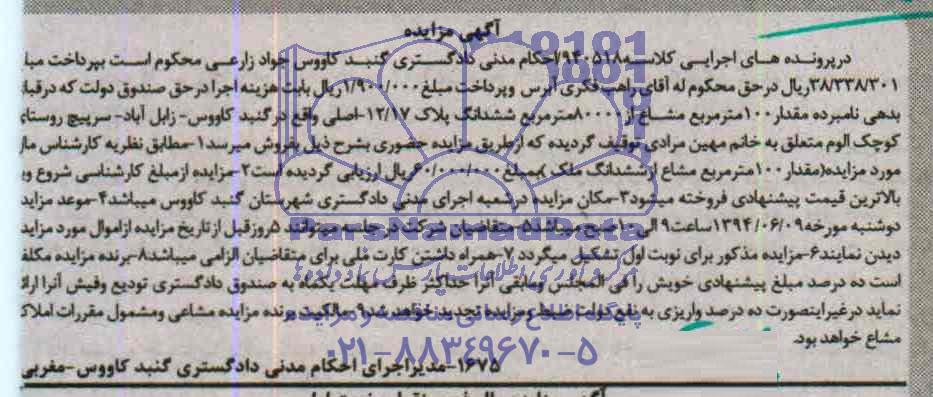 آگهی مزایده
درپرونده های اجرایی کلاسه ۹۴۰۵۱۸/احکام مدنی دادگستری گنبد کاووس جواد زارعی محکوم است بپرداخت مبلغ
۳۸/۳۳۸/۳۰۱ریال درحق محکوم له آقای راهب فکری آبرس وپرداخت مبلغ ۱/۹۰۰/۰۰۰ریال بابت هزینه اجرا درحق صندوق دولت که درقبال
بدهی نامبرده مقدار۱۰۰مترمربع مشاع از۸۰۰۰۰مترمربع ششدانگ پلاک ۱۲/۱۷-اصلی واقع درگنبد کاووس- زابل آباد- سرپیچ روستای
کوچک الوم متعلق به خانم مهین مرادی توقیف گردیده که ازطریق مزایده حضوری بشرح ذیل بفروش میرسد۱-مطابق نظریه کارشناس مال
مورد مزایده(مقدار۱۰۰مترمربع مشاع ازششدانگ ملک )بمبلغ۶۰/۰۰۰/۰۰۰ریال ارزیابی گردیده است۲-مزایده ازمبلغ کارشناسی شروع و
بالاترین قیمت پیشنهادی فروخته میشود۳-مکان مزایده درشعبه اجرای مدنی دادگستری شهرستان گنبد کاووس میباشد۴-موعد مزایده
دوشنبه مورخه۱۳۹۴/۰۶/۰۹ساعت۹الی۱۰صبح میباشد۵-متقاضیان شرکت درجلسه میتوانند ۵روزقبل ازتاریخ مزایده ازاموال مورد مزایده
دیدن نمایند۶-مزایده مذکور برای نوبت اول تشکیل میگردد۷-همراه داشتن کارت ملی برای متقاضیان الزامی میباشد۸-برنده مزایده مکلف
است ده درصد مبلغ پیشنهادی خویش را فی المجلس ومابقی آنرا حداکثر ظرف مهلت یکماه به صندوق دادگستری تودیع وفیش آنرا ارائه
نماید درغیراینصورت ده درصد واریزی به نفع دولت ضبط ومزایده تجدید خواهد شد۹-مالکیت برنده مزایده مشاعی ومشمول مقررات املاک
مشاع خواهد بود.
۱۶۷۵-مدیراجرای احکام مدنی دادگستری گنبد کاووس-مغربی
ParsNamadData
پایگاه اطلاع رسانی مناقصه و مزایده
۰۲۱-۸۸۳۴۹۶۷۰-۵